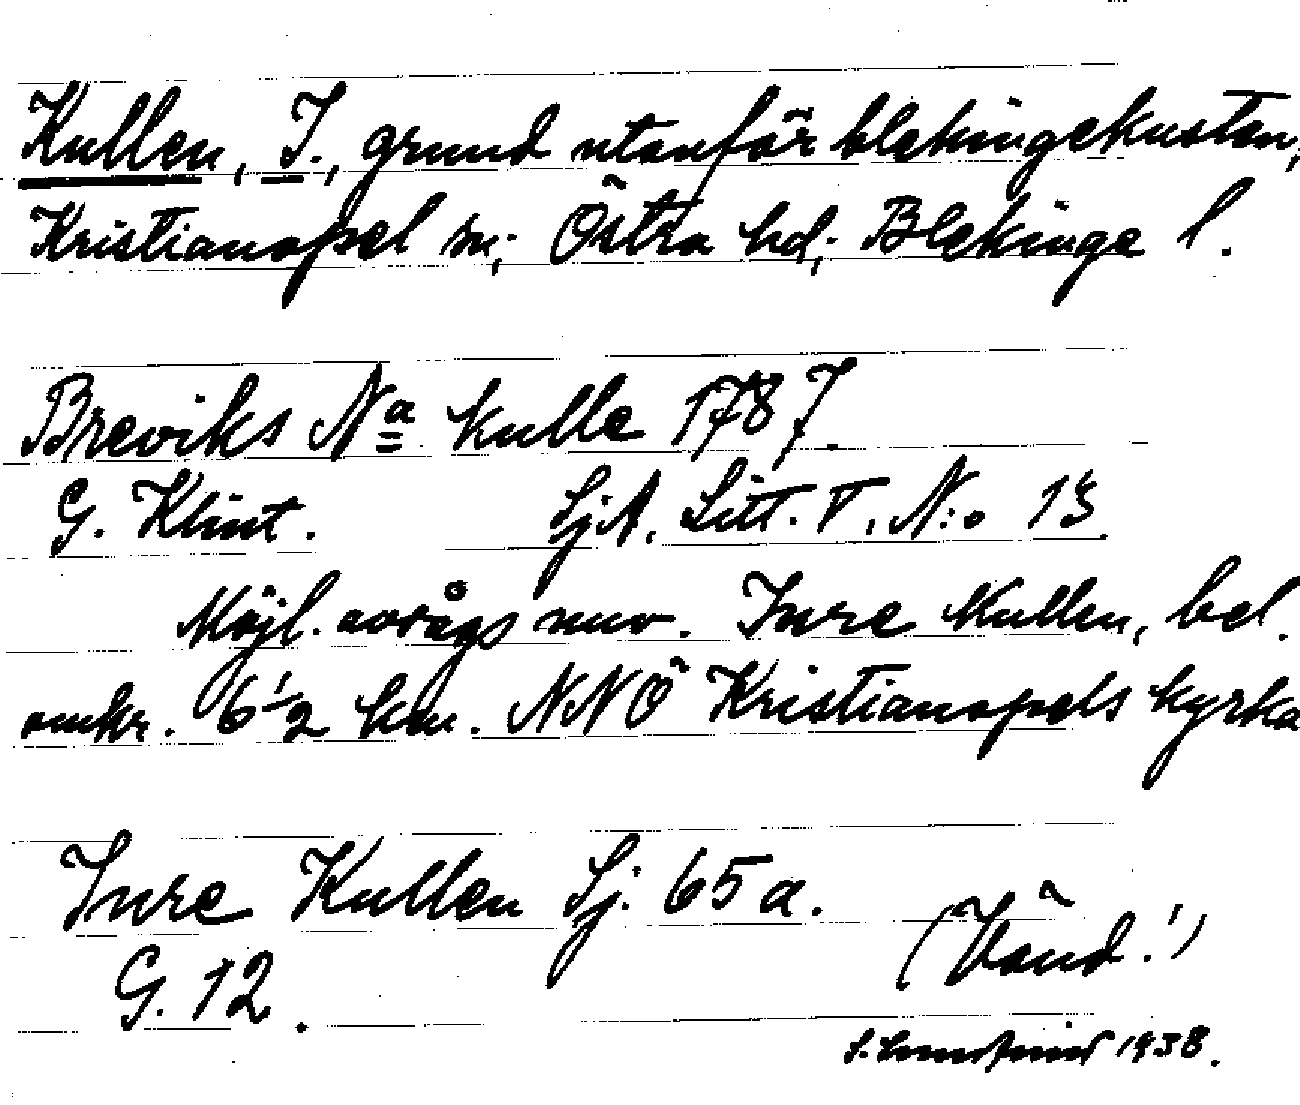 Kullen, I., grund utanför blekingekusten,
Kristianopel sn; Östra hd; Blekinge l.
Breviks Na kulle 1787.
G. Klint. SjA. Litt. V. N:o 13.
Möjl. avsågs nuv. Inre Kullen, bel.
omkr. 6 1/2 km. NNÖ Kristianopels kyrka
Inre Kullen Sj. 65 a.
G. 12.
(Vänd!)
1938.